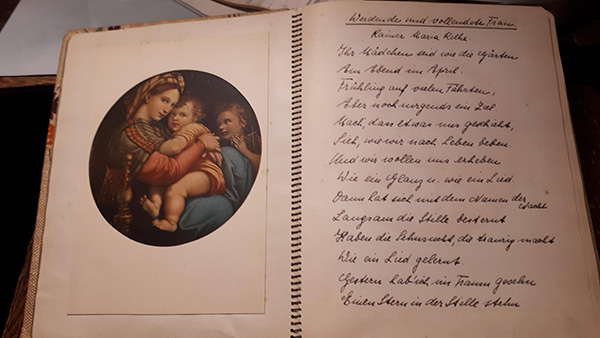 Werdende und vollendete Frau
Rainer Maria Rilke
Ihr Mädchen seid wie die Gärten
Am Abend im April.
Frühling auf vielen Fährten,
Aber noch nirgends ein Ziel
Mach, dass etwas uns geschieht,
Sieh, wie wir nach Leben beben
Und wir wollen uns erheben
Wie ein Glanz u. wie ein Lied.
Dann hat sich mit dem Namen der Nacht
Langsam die Stille besternt
Haben die Sehnsucht, die traurig macht
Wie ein Lied gelernt.
Gestern hab' ich im Traum gesehn
Einen Stern in der Stille stehn